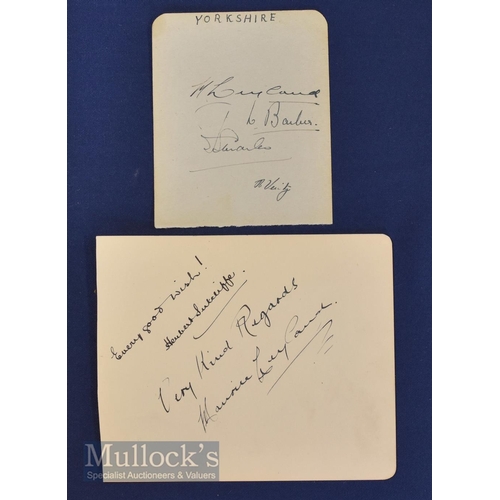 YORKSHIRE
M Leyland
Barber.
H Verity
Every good wish!
Herbert Sutcliffe.
Very Kind Regards
Maurice Leyland.
Mullock's
Specialist Auctioneers & Valuers